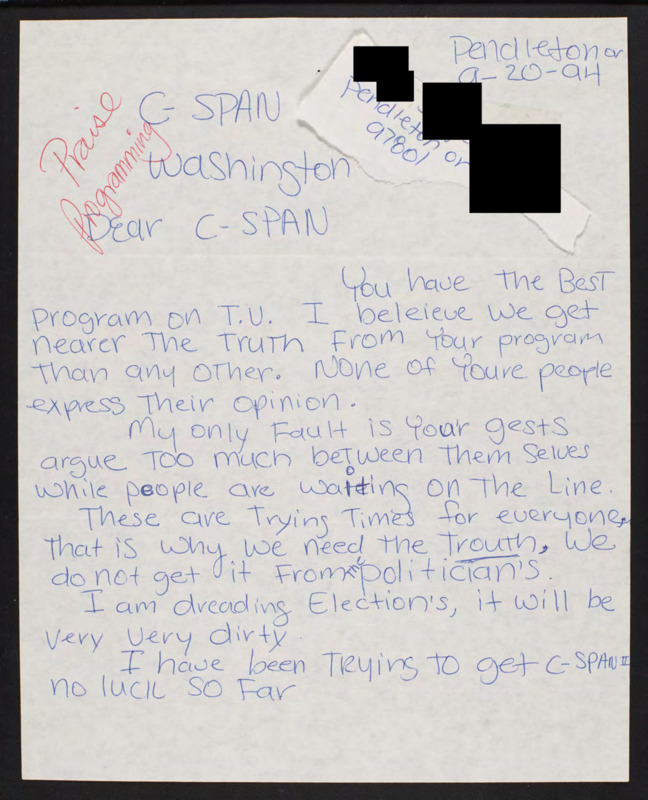 Pendleton or
9-20-94
Pendleton or
97801
Praise
Programming
C-SPAN
Washington
Dear C-SPAN
You have the Best
program on T.V. I beleieve we get
nearer The Truth From Your program
Than any OTher. None of Youre people
express Their opinion.
My only Fault is Your gests
argue Too much between Them selves
while people are waiting on The Line.
These are Trying Times for everyone,
that is why we need the Trouth, We
do not get it From politician's.
I am dreading Election's, it will be
very very dirty.
I have been Trying To get C-SPAN II
no luck so Far